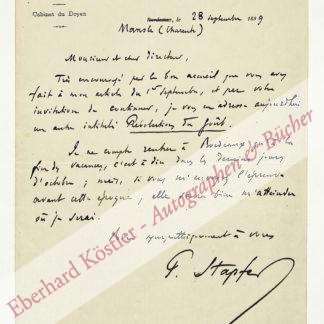 Cabinet du Doyen
Bordeaux, le 28 septembre 1899
Mansle (Charente)
Monsieur et cher directeur,
Très encouragé par le bon accueil que vous avez
fait à mon article du 1er septembre, et par votre
invitation de continuer, je vous en adresse aujourd'hui
un autre intitulé Révolutions du goût.
Je ne compte rentrer à Bordeaux qu'à la
fin des vacances, c'est à dire dans les derniers jours
d'octobre ; mais, si vous m'envoyez l'épreuve
avant cette époque, elle m'atteindra
où je serai.
sympathiquement à vous
P. Stapfer
Eberhard Köstler - Autographen & Bücher